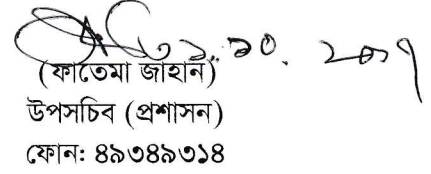 (ফাতেমা জাহান)
উপসচিব (প্রশাসন)
ফোন: ৪৯৩৪৯৩১৪